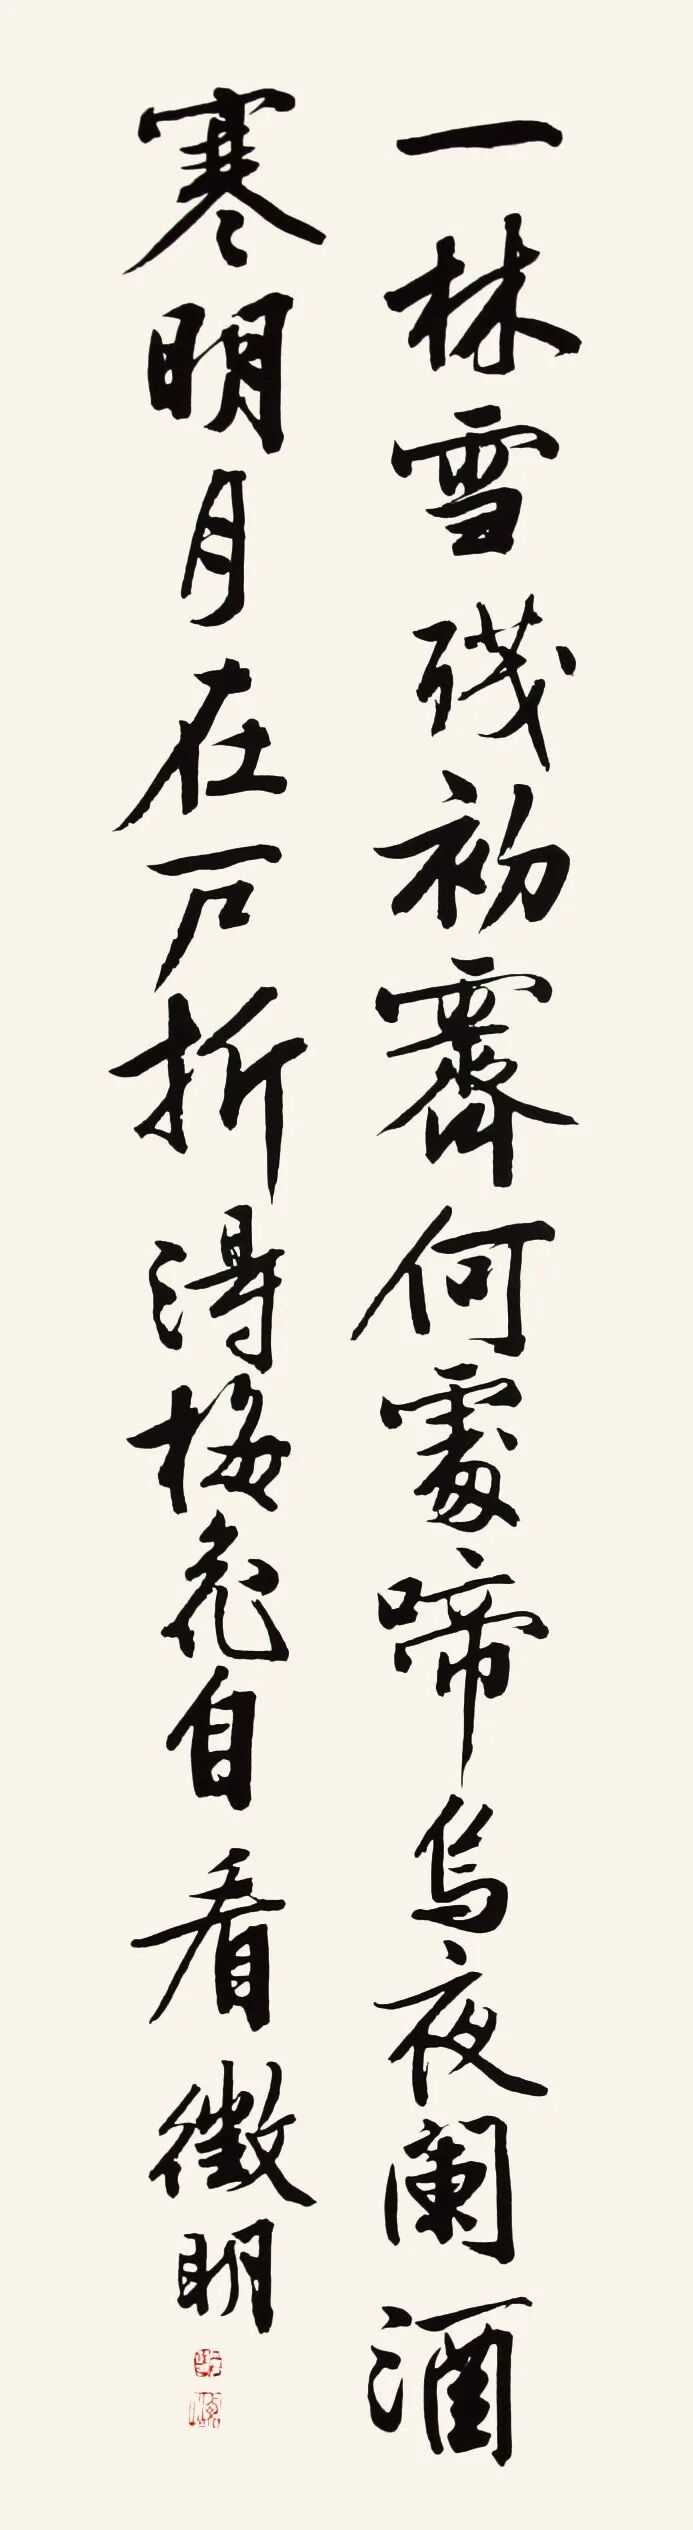 一林雪残初霽何處啼烏夜闌酒
寒明月在戶折得梅花自看徵明